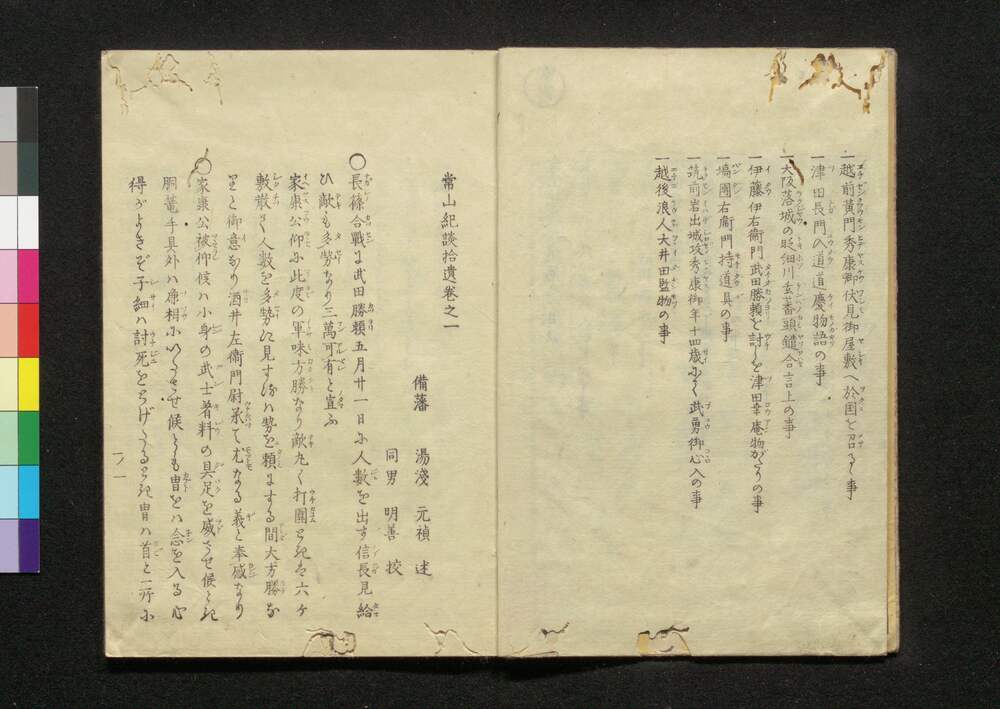 一越前黄門秀康卿伏見御屋敷へ於国を召るゝ事
一津田長門入道道慶物語の事
一大阪落城の砌細川玄蕃頭鑓合言上の事
一伊藤伊右衛門武田勝頼を討しを津田幸庵物がたりの事
一塙團右衛門持道具の事
一筑前岩出城攻秀康御年十四歳にて武勇御心入の事
一越後浪人大井田監物の事
常山紀談拾遺巻之一
備藩 湯淺 元禎 述
同男 明善 校
〇長篠合戦に武田勝頼五月廿一日に人数を出す信長見給
ひ敵も多勢なり三萬可有と宣ふ
家康公仰に此度の軍味方勝なり敵丸く打圍とき六ケ
敷散く人数を多勢に見するハ勢を頼にする間大方勝な
りと御意なり酒井左衛門尉承て尤なる義と奉感なり
〇家康公被仰候ハ小身の武士着料の具足を威させ候とき
胴籠手具外ハ麁相にいたさせ候とも冑をハ念を入る心
得がよきぞ子細ハ討死をとげたるとき冑ハ首と一所に
一ノ一